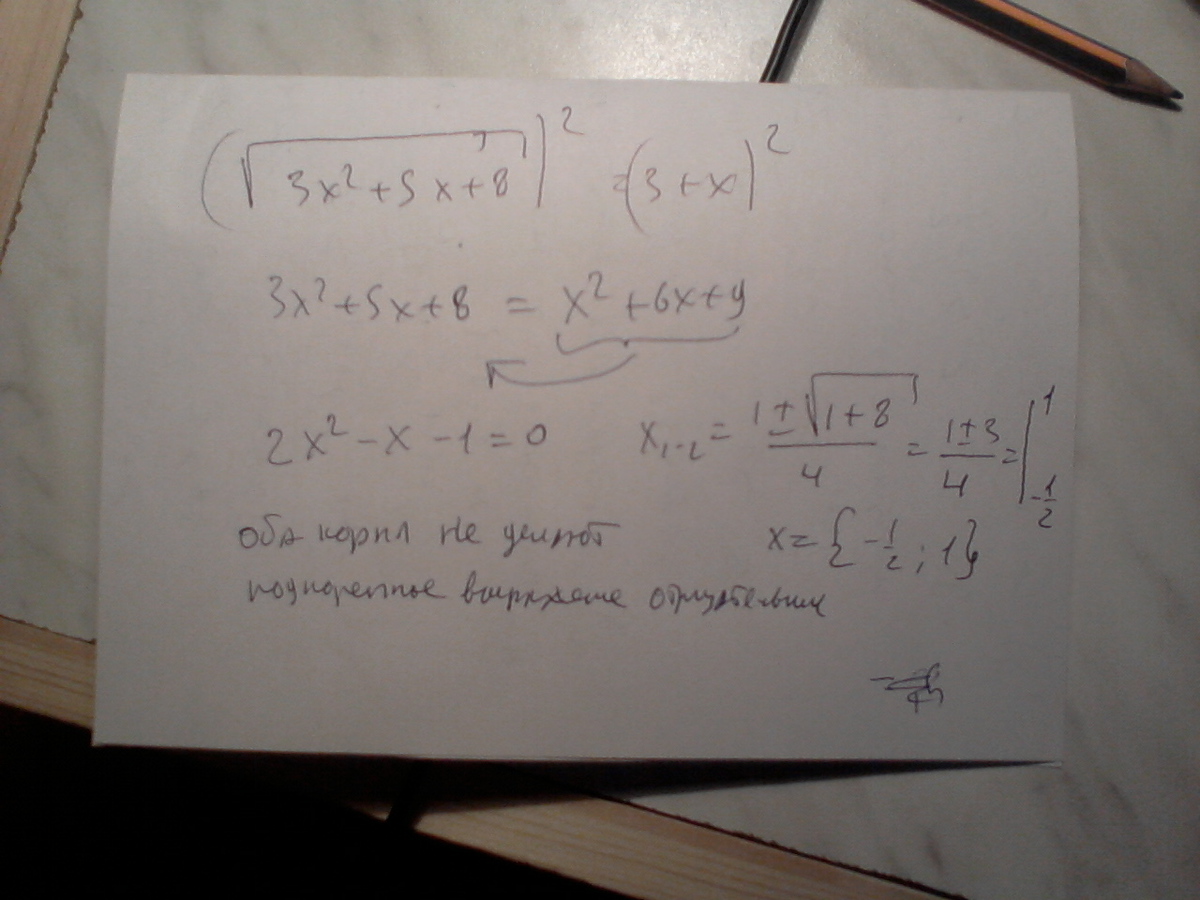 (√(3x² + 5x + 8))² = (3 + x)²
3x² + 5x + 8 = x² + 6x + 9
2x² - x - 1 = 0 x₁₋₂ = (1 ± √(1 + 8))/4 = (1 ± 3)/4 = | 1 -1/2
x = {-1/2; 1}
оба корня не делают
подкоренное выражение отрицательным